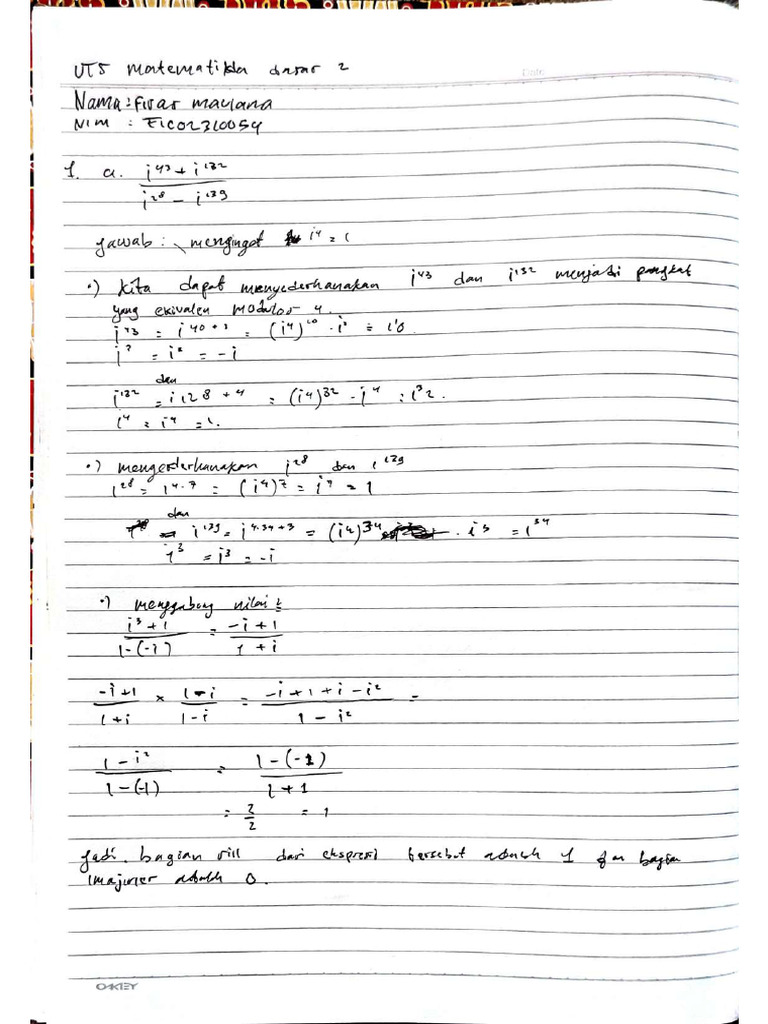 UTS matematika dasar 2
Date
Nama: Firar maulana
NIM : E1C02310054
1. a. i⁴³ + i¹³² / i²⁸ − i¹³⁹
Jawab : mengingat i⁴ = 1
•) Kita dapat menyederhanakan i⁴³ dan i¹³² menjadi pangkat
yang ekivalen modulor 4.
i⁴³ = i⁴⁰⁺³ = (i⁴)¹⁰ · i³ = 1¹⁰
i³ = i³ = −i
dan
i¹³² = i128 + 4 = (i⁴)³² · i⁴ = 1³2.
i⁴ = i⁴ = 1.
•) mengederhanakan i²⁸ dan i¹³⁹
i²⁸ = i⁴·⁷ = (i⁴)⁷ = i⁷ = 1
dan
i¹³⁹ = i⁴·³⁴⁺³ = (i⁴)³⁴ · i³ = 1³⁴
i³ = i³ = −i
•) menggabung nilai :
i³ + 1 / 1 − (−i) = −i + 1 / 1 + i
−i + 1 / 1 + i × 1 − i / 1 − i = −i + 1 + i − i² / 1 − i² =
1 − i² / 1 − (−1) = 1 − (−1) / 1 + 1
= 2 / 2 = 1
Jadi. bagian rill dari ekspresi tersebut adalah 1 dan bagian
imajiner adalah 0.
OAKLEY